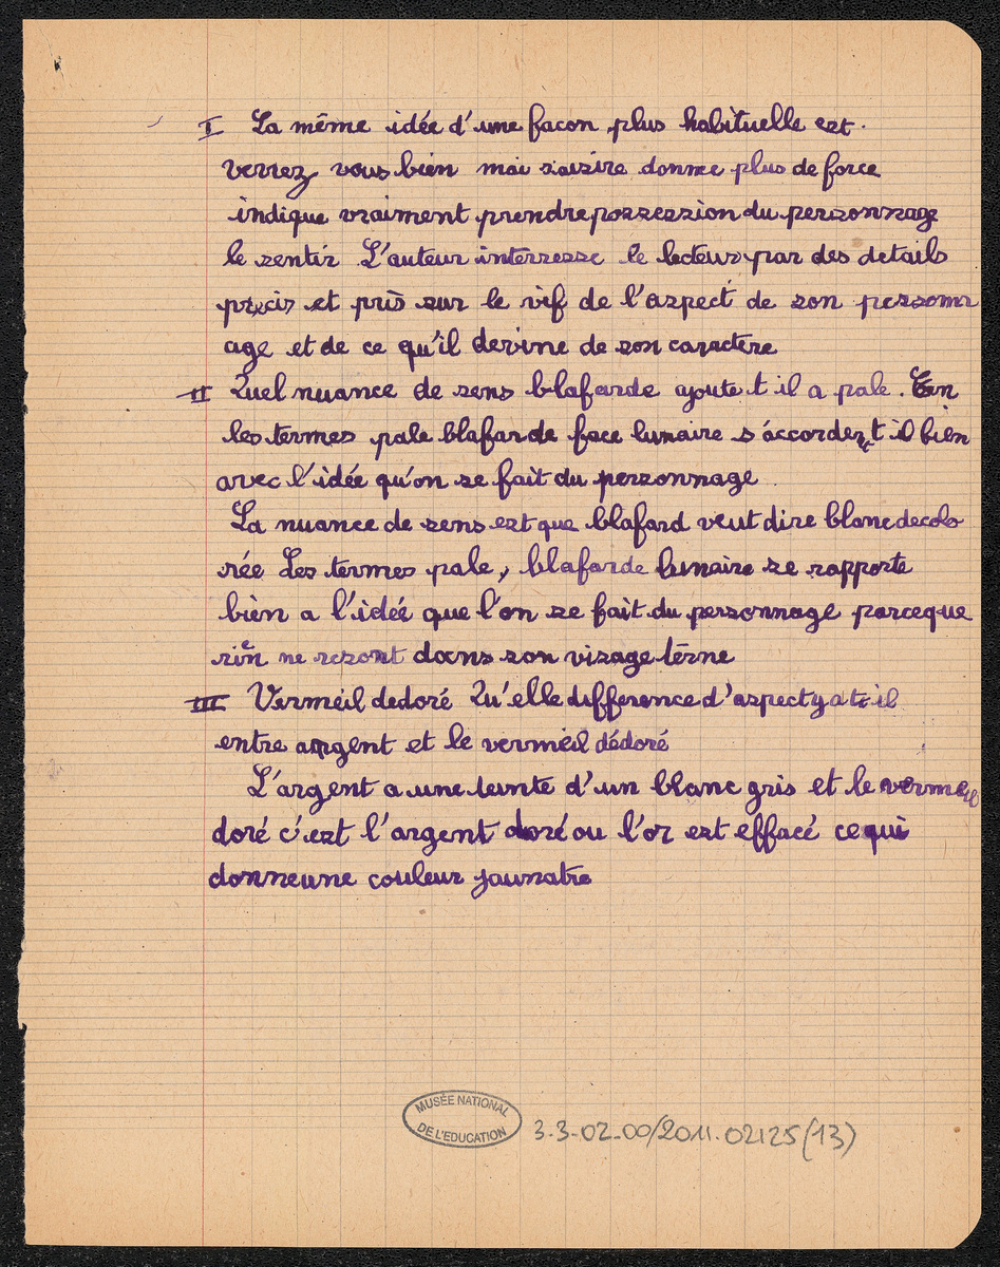 I La même idée d'une facon plus habituelle est.
verrez vous bien moi saisire donne plus de force
indique vraiment prendre possession du personnage
le sentir L'auteur interresse le lecteur par des details
précis et pris sur le vif de l'aspect de son personn
age et de ce qu'il devine de son caractère
II Quel nuance de sens blafarde ajoute t il a pale. En
les termes pale blafarde face lunaire s'accordent il bien
avec l'idée qu'on se fait du personnage
La nuance de sens est que blafard veut dire blanc decolo
rée Les termes pale, blafarde lunaire se rapporte
bien a l'idée que l'on se fait du personnage parceque
rien ne resont dans son visage terne
III Vermeil dedoré Qu'elle difference d'aspect y a t-il
entre argent et le vermeil dédoré
L'argent a une teinte d'un blanc gris et le vermeil
doré c'est l'argent doré ou l'or est effacé ce qui
donne une couleur jaunatre
MUSÉE NATIONAL
DE L'EDUCATION
3.3-02.00/2011.02125(13)